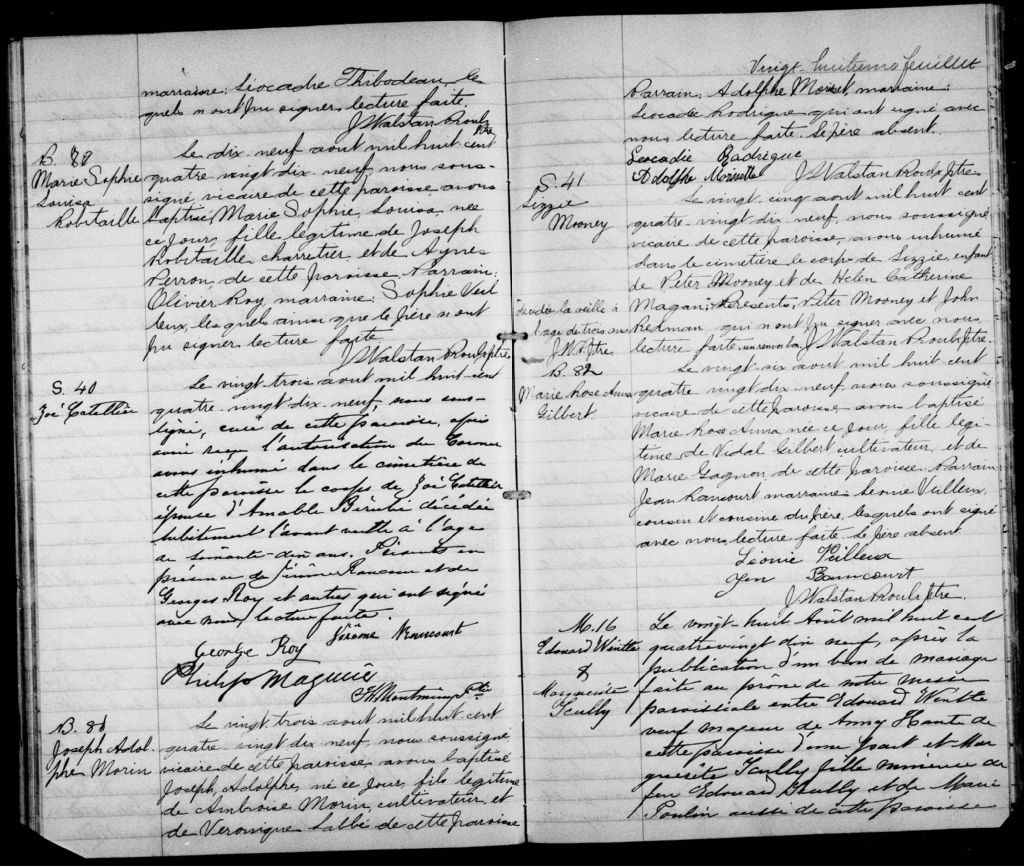 marraine: Léocadie Thibodeau, les
quels n'ont pu signer, lecture faite.
J. Walstan Roul. Ptre
B. 80
Marie Sophie
Louisa
Robitaille
Le dix-neuf aout mil huit cent
quatre vingt dix neuf, nous sous-
signé, vicaire de cette paroisse avons
baptisé, Marie Sophie, Louisa, née
ce jour, fille légitime de Joseph
Robitaille, charretier, et de Agnes
Perron, de cette paroisse. Parrain:
Olivier Roy, marraine: Sophie Veil
leux, lesquels ainsi que le père n'ont
pu signer, lecture faite
J Walstan Roul. ptre
S. 40
Zoé
Le vingt trois aout mil huit cent
quatre vingt dix neuf, nous sous-
signé, curé de cette paroisse, après
avoir reçu l'autorisation du Coroner
avons inhumé dans le cimetière de
cette paroisse le corps de Zoé
épouse d'Amable Bérubé décédée
subitement l'avant veille à l'age
de soixante-dix ans. Présents en
présence de Jérôme Rancourt et de
Georges Roy et autres qui ont signé
avec nous, lecture faite.
George Roy Jérôme Rancourt
Philip Maguire
Ptre
B. 81
Joseph Adol-
phe Morin
Le vingt trois aout mil huit cent
quatre vingt dix neuf, nous soussigné
vicaire de cette paroisse, avons baptisé
Joseph, Adolphe, né ce jour, fils légitime
de Ambroise Morin, cultivateur, et
de Veronique Labbé de cette paroisse
Vingt-huitieme feuillet
Parrain: Adolphe marraine:
Leocadie Rodrigue qui ont signé avec
nous lecture faite. Le père absent.
Leocadie Rodrigue
Adolphe J Walstan Roul. ptre
S. 41
Lizzie
Mooney
Le vingt cinq aout mil huit cent
quatre vingt dix neuf, nous soussigné
vicaire de cette paroisse, avons inhumé
dans le cimetière le corps de Lizzie, enfant
de Peter Mooney et de Helen Catherine
Magan; Présents, Peter Mooney et John
Redman, qui n'ont pu signer avec nous,
lecture faite. un renvoi bon. J Walstan Roul. ptre
décédée la veille à
l'age de trois ans
J.W.R. Ptre
B. 82
Marie Rose Anna
Gilbert
Le vingt six aout mil huit cent
quatre vingt dix neuf nous soussigné
vicaire de cette paroisse avons baptisé
Marie Rose Anna née ce jour, fille légi-
time de Vidal Gilbert cultivateur, et de
Marie Gagnon, de cette paroisse. Parrain
Jean Rancourt marraine Leonie Veilleux,
cousin et cousine du père, lesquels ont signé
avec nous lecture faite. Le père absent
Léonie Veilleux
Jean Rancourt
J Walstan Roul. Ptre.
M. 16
Edouard
&
Marguerite
Scully
Le vingt-huit Août mil huit cent
quatre vingt dix neuf, après la
publication d'un ban de mariage
faite au prône de notre messe
paroissiale entre Edouard
veuf majeur de Anny de
cette paroisse d'une part et Mar
guérite Scully fille mineure de
feu Edouard Scully et de Marie
Poulin aussi de cette paroisse